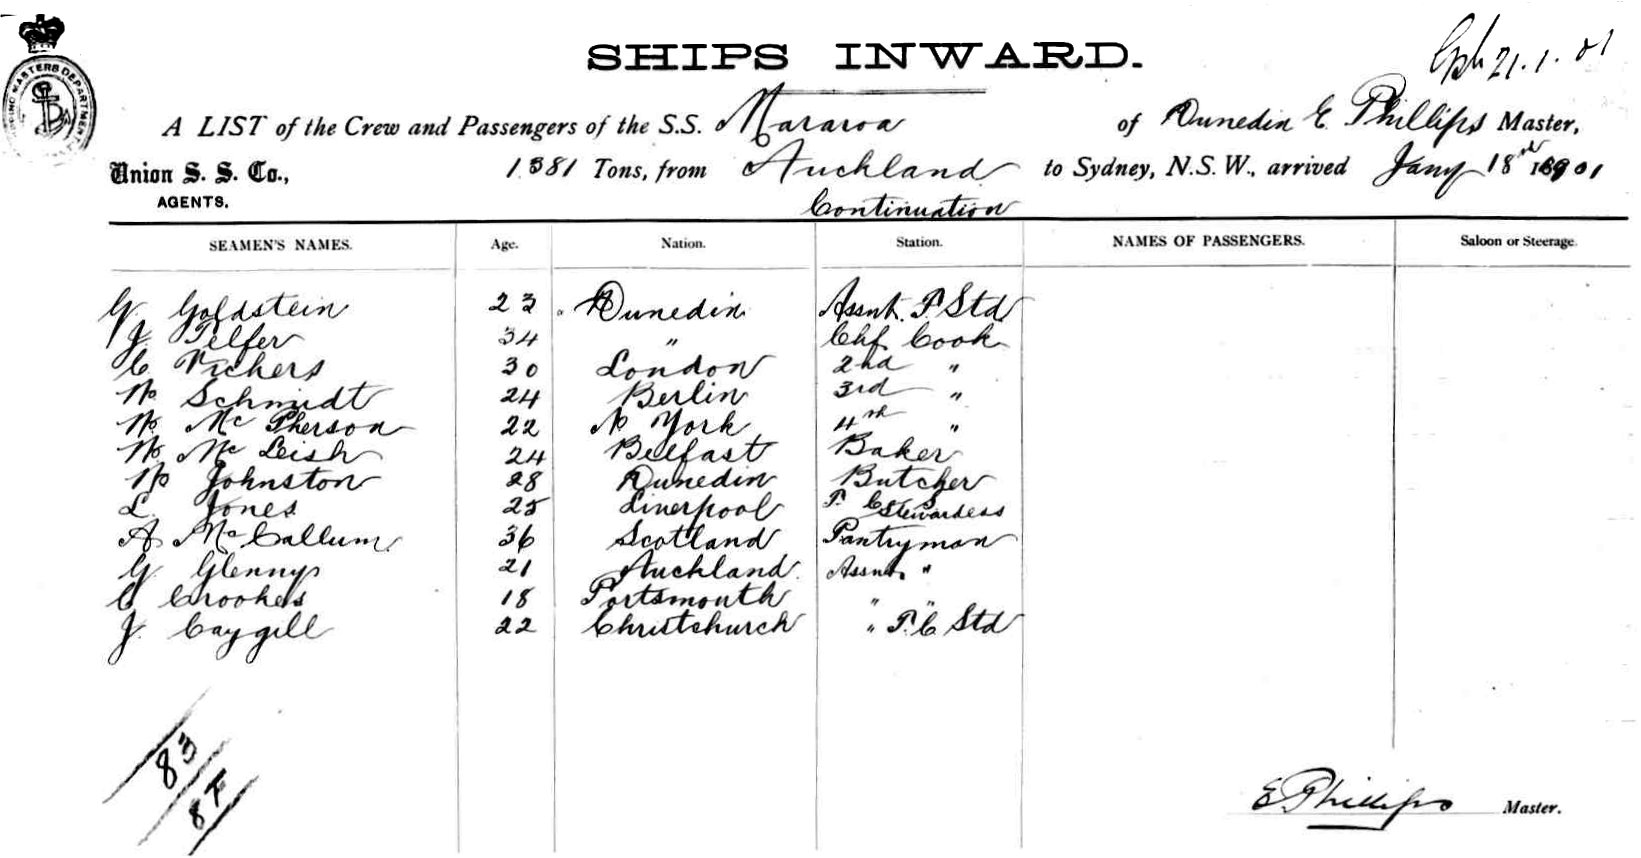 SHIPS INWARD.
21.1.01
SHIPPING MASTERS DEPARTMENT
A LIST of the Crew and Passengers of the S.S. Mararoa of Dunedin E. Phillips Master,
Union S. S. Co., 1381 Tons, from Auckland to Sydney, N.S.W., arrived Jany 18 1901
AGENTS.
Continuation
SEAMEN'S NAMES. Age. Nation. Station. NAMES OF PASSENGERS. Saloon or Steerage.
G. Goldstein 23 Dunedin Assnt. F. Std
J. Telfer 34 " Chf. Cook
C Vickers 30 London 2nd "
W Schmidt 24 Berlin 3rd "
W. McPherson 22 N York 4th "
W. McLeish 24 Belfast Baker
W Johnston 28 Dunedin Butcher
L. Jones 25 Liverpool F. C Stewardess
A McCallum 36 Scotland Pantryman
G Glenny 21 Auckland. Assnt. "
C Crookes 18 Portsmouth " "
J. Caygill 22 Christchurch " F. C Std
83
E Phillips Master.